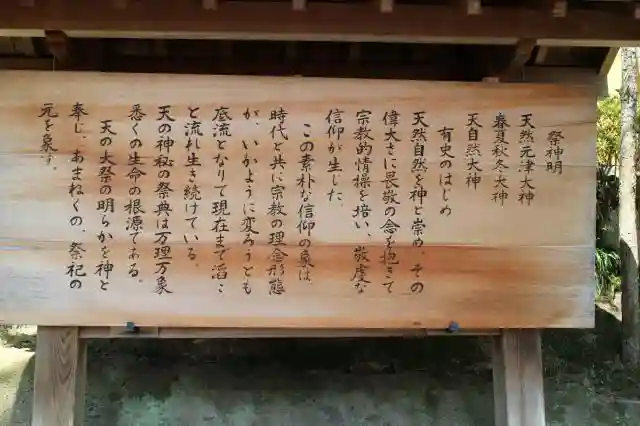 祭神明
天然元津大神
春夏秋冬大神
天自然大神
有史のはじめ
天然自然を神と崇め、その
偉大さに畏敬の念を抱きて
宗教的情操を培い、敬虔な
信仰が生じた。
この素朴な信仰の象は、
時代と共に宗教の理念形態
が、いかように変ろうとも
底流となりて現在まで滔々
と流れ生き続けている。
天の神秘の祭典は万理万象
悉くの生命の根源である。
天の大祭の明らかを神と
奉じ、あまねくの、祭祀の
元を象す。